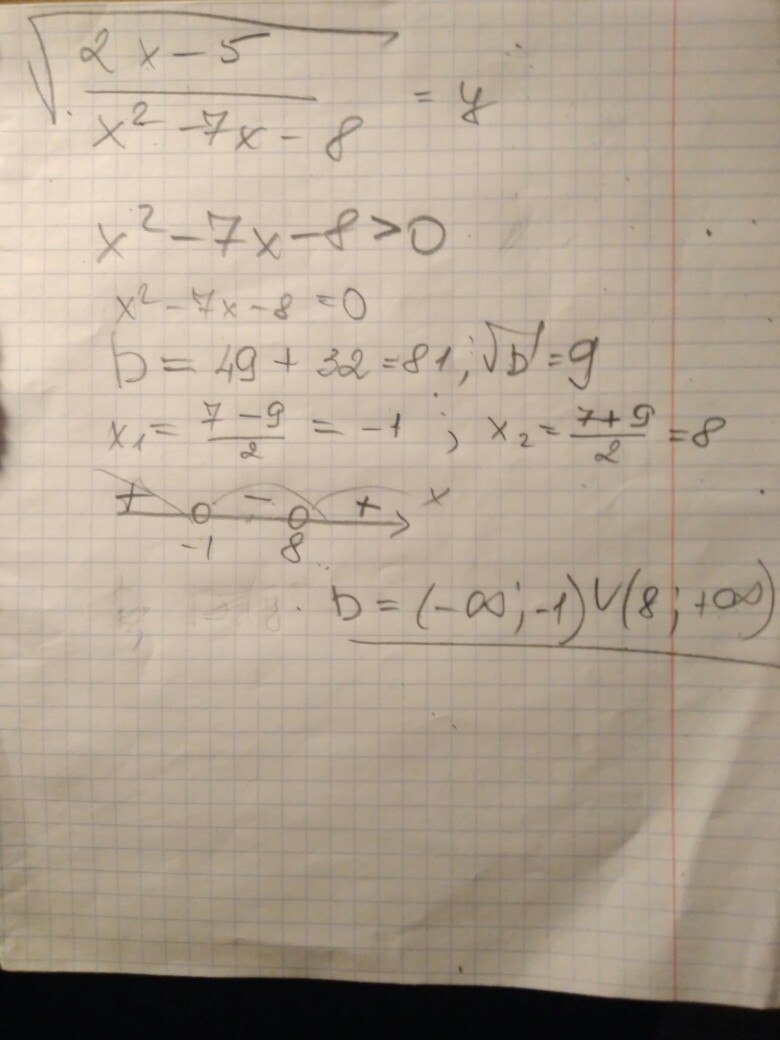 √(2x-5)/(x²-7x-8) = y
x²-7x-8>0
x²-7x-8=0
D = 49+32=81; √D=9
x₁ = (7-9)/2 = -1 ; x₂ = (7+9)/2 = 8
+ - + x
-1 8
D = (-∞; -1) ∪ (8; +∞)